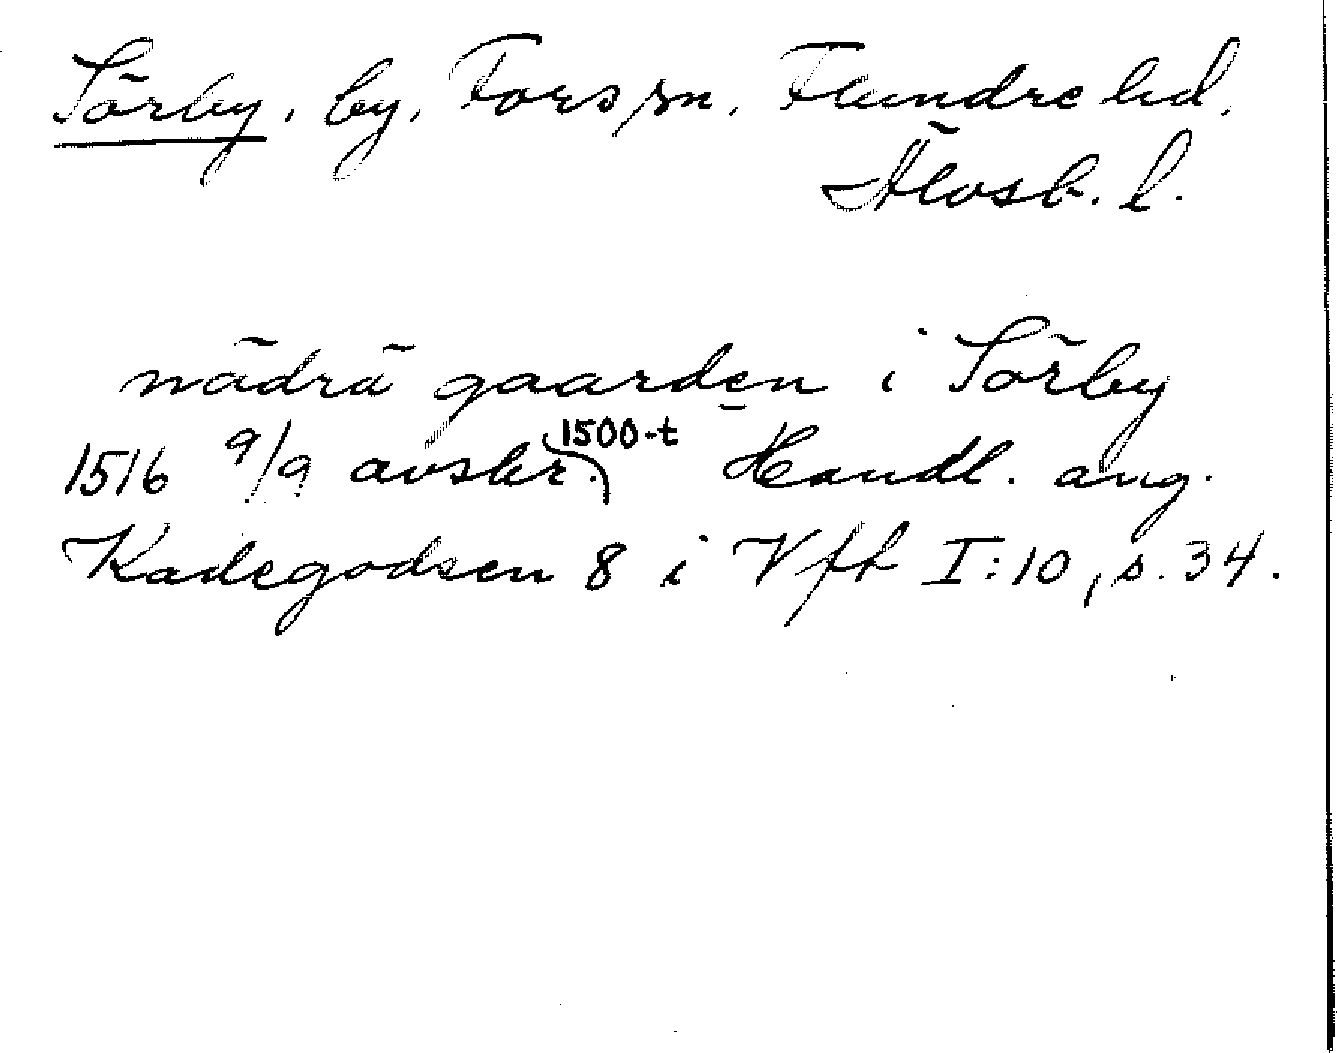 Sörby, by, Fors sn. Flundre hd.
Älvsb. l.
nädrä gaarden i Sörby
1516 9/9 avskr. 1500-t Handl. ang.
Kadegodsen 8 i Vfk I:10, s. 34.